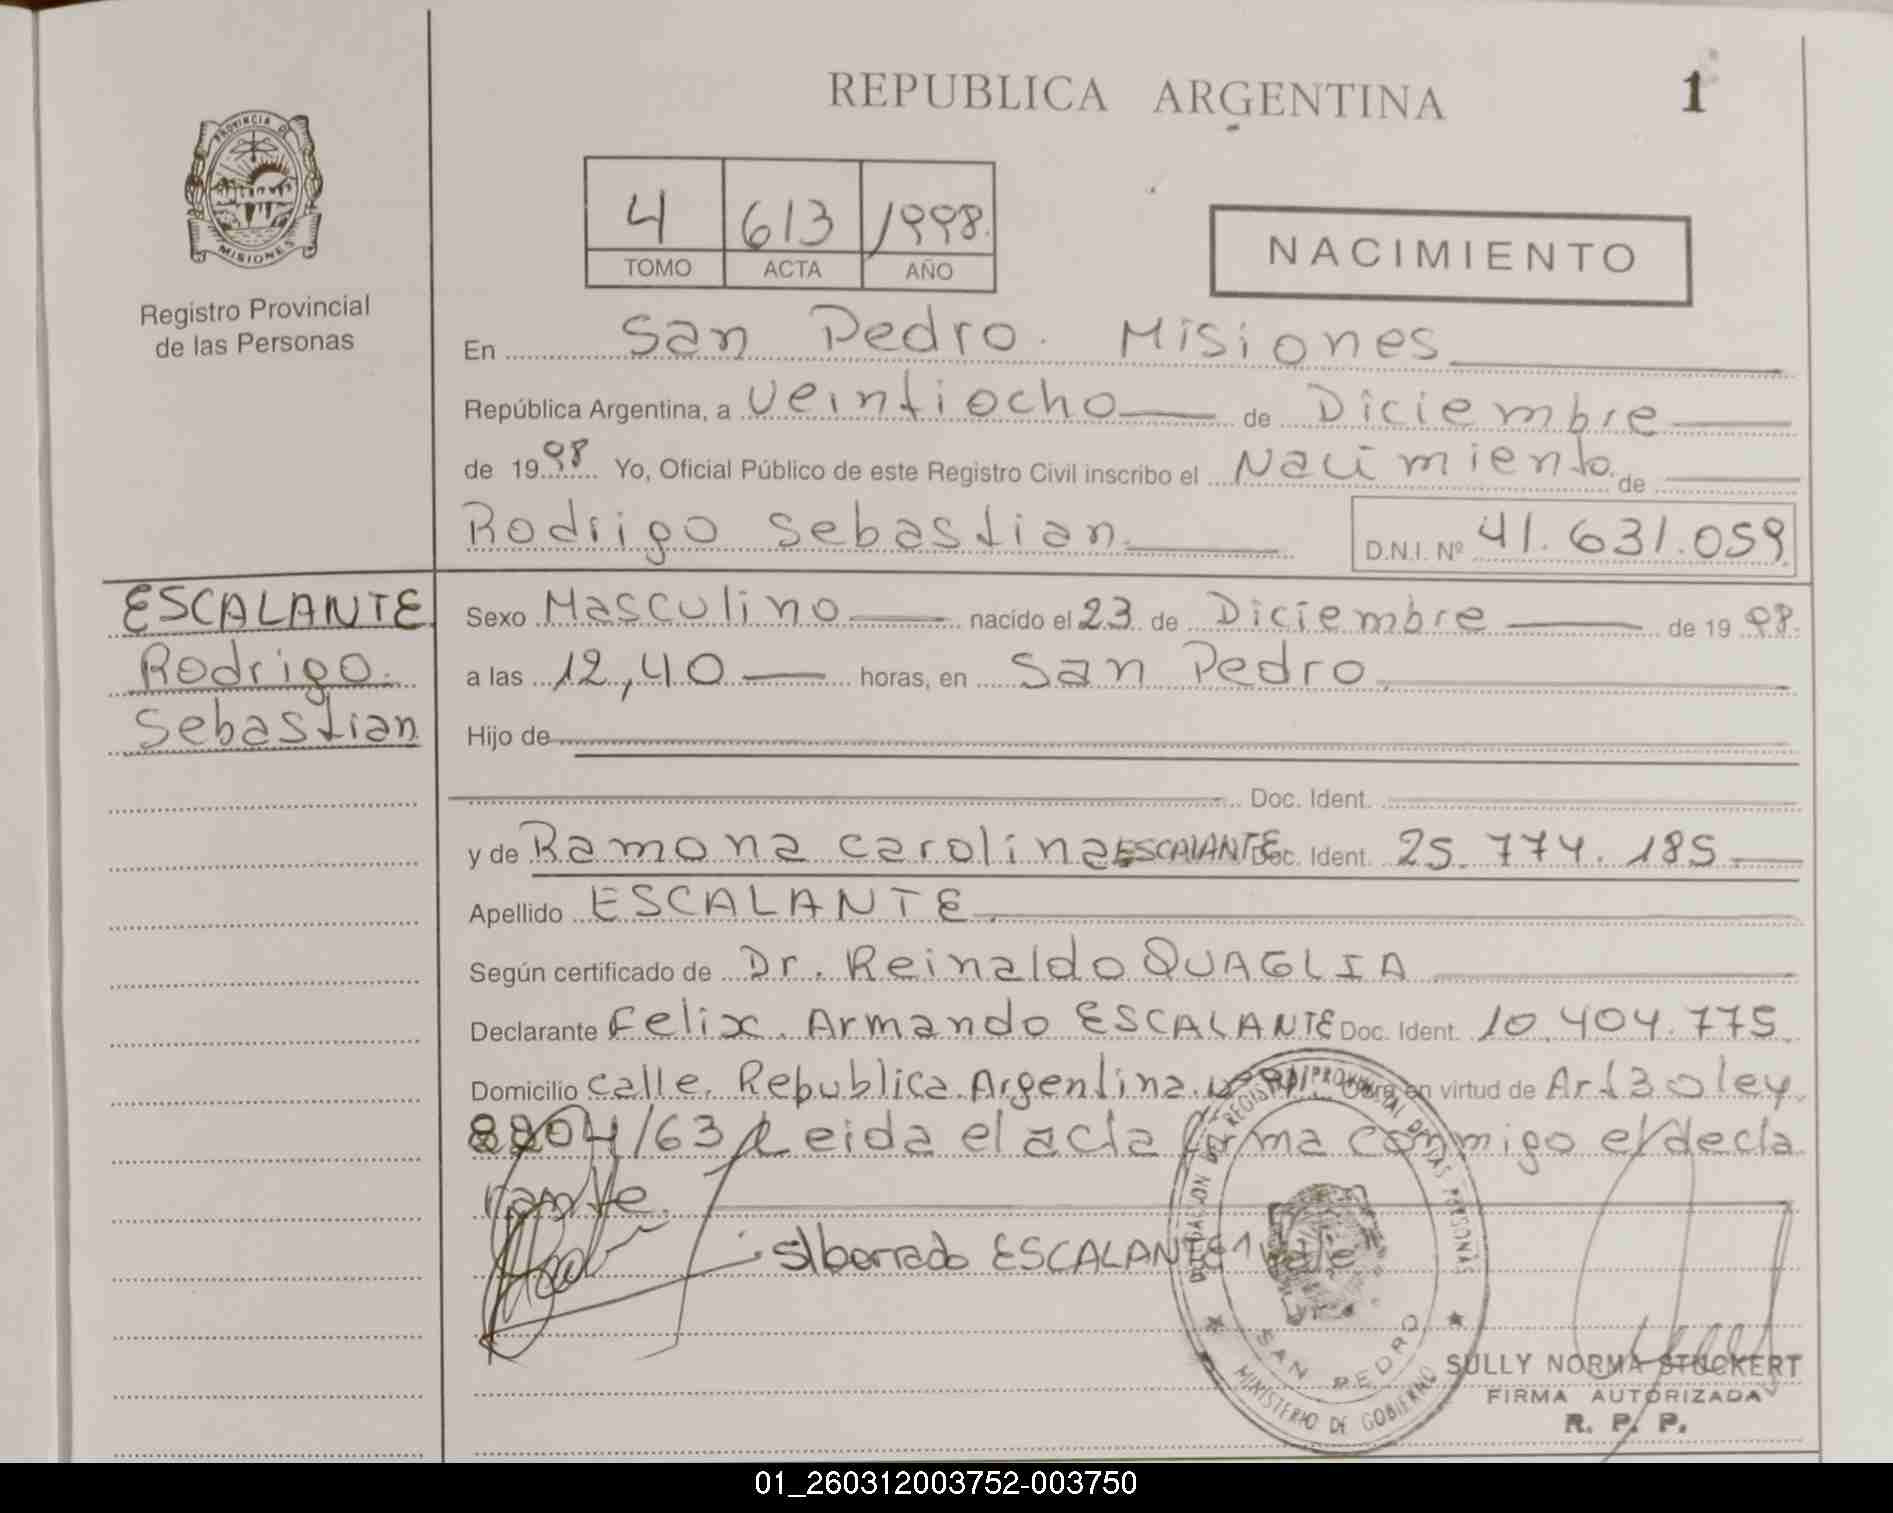 REPUBLICA ARGENTINA
1
PROVINCIA DE
MISIONES
Registro Provincial
de las Personas
4 613 1998.
TOMO ACTA AÑO
NACIMIENTO
En San Pedro. Misiones
República Argentina, a veintiocho de Diciembre
de 1998 Yo, Oficial Público de este Registro Civil inscribo el Nacimiento. de
Rodrigo Sebastian D.N.I. Nº 41.631.059
ESCALANTE
Rodrigo.
Sebastian
Sexo Masculino nacido el 23 de Diciembre de 1998.
a las 12,40 horas, en San Pedro.
Hijo de
Doc. Ident.
y de Ramona Carolina ESCALANTE Doc. Ident. 25.774.185.
Apellido ESCALANTE.
Según certificado de Dr. Reinaldo QUAGLIA
Declarante Felix. Armando ESCALANTE Doc. Ident. 10.404.775
Domicilio calle. Republica. Argentina. Obra en virtud de Art 30 ley.
8204/63 Leida el acta firma conmigo el decla
rante.
S/borrado ESCALANTE
REGISTRO PROVINCIAL DE LAS PERSONAS
SAN PEDRO
MINISTERIO DE GOBIERNO
SULLY NORMA STUCKERT
FIRMA AUTORIZADA
R. P. P.
01_260312003752-003750